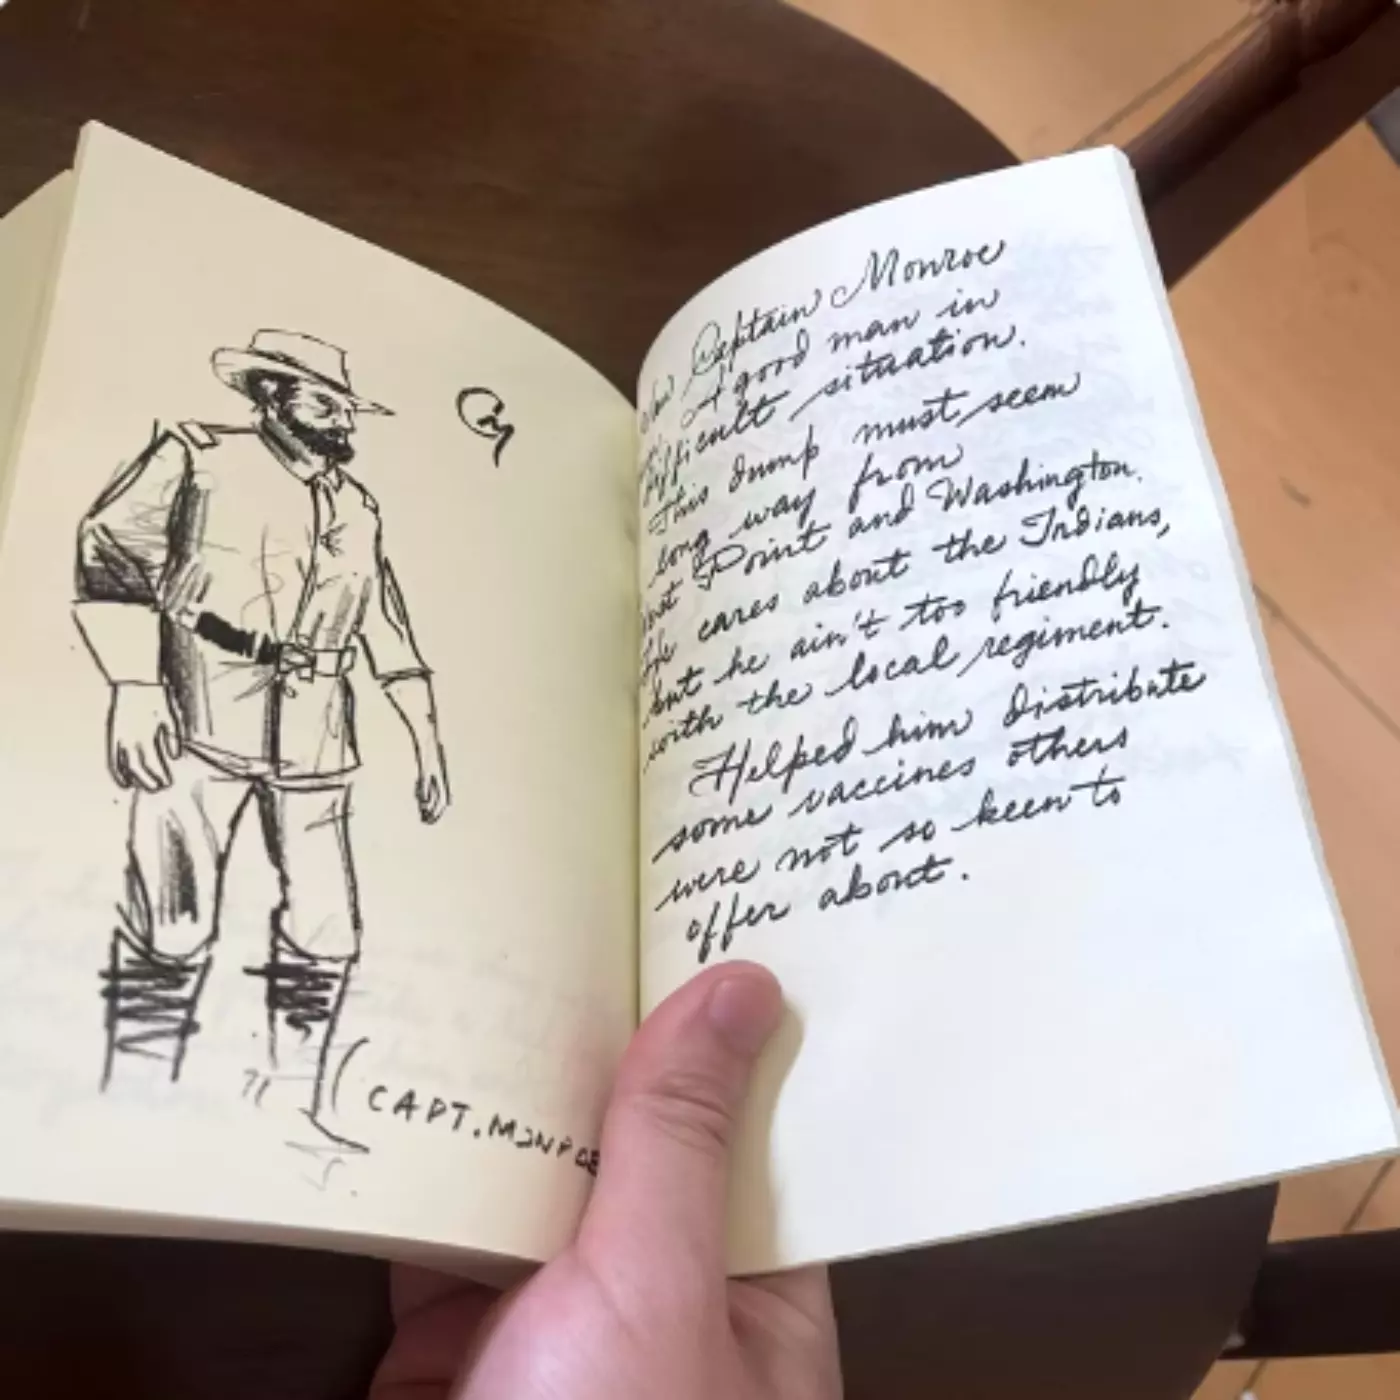 CAPT. MONROE
Captain Monroe
A good man in
difficult situation.
This dump must seem
long way from
Point and Washington.
He cares about the Indians,
but he ain't too friendly
with the local regiment.
Helped him distribute
some vaccines others
were not so keen to
offer about.